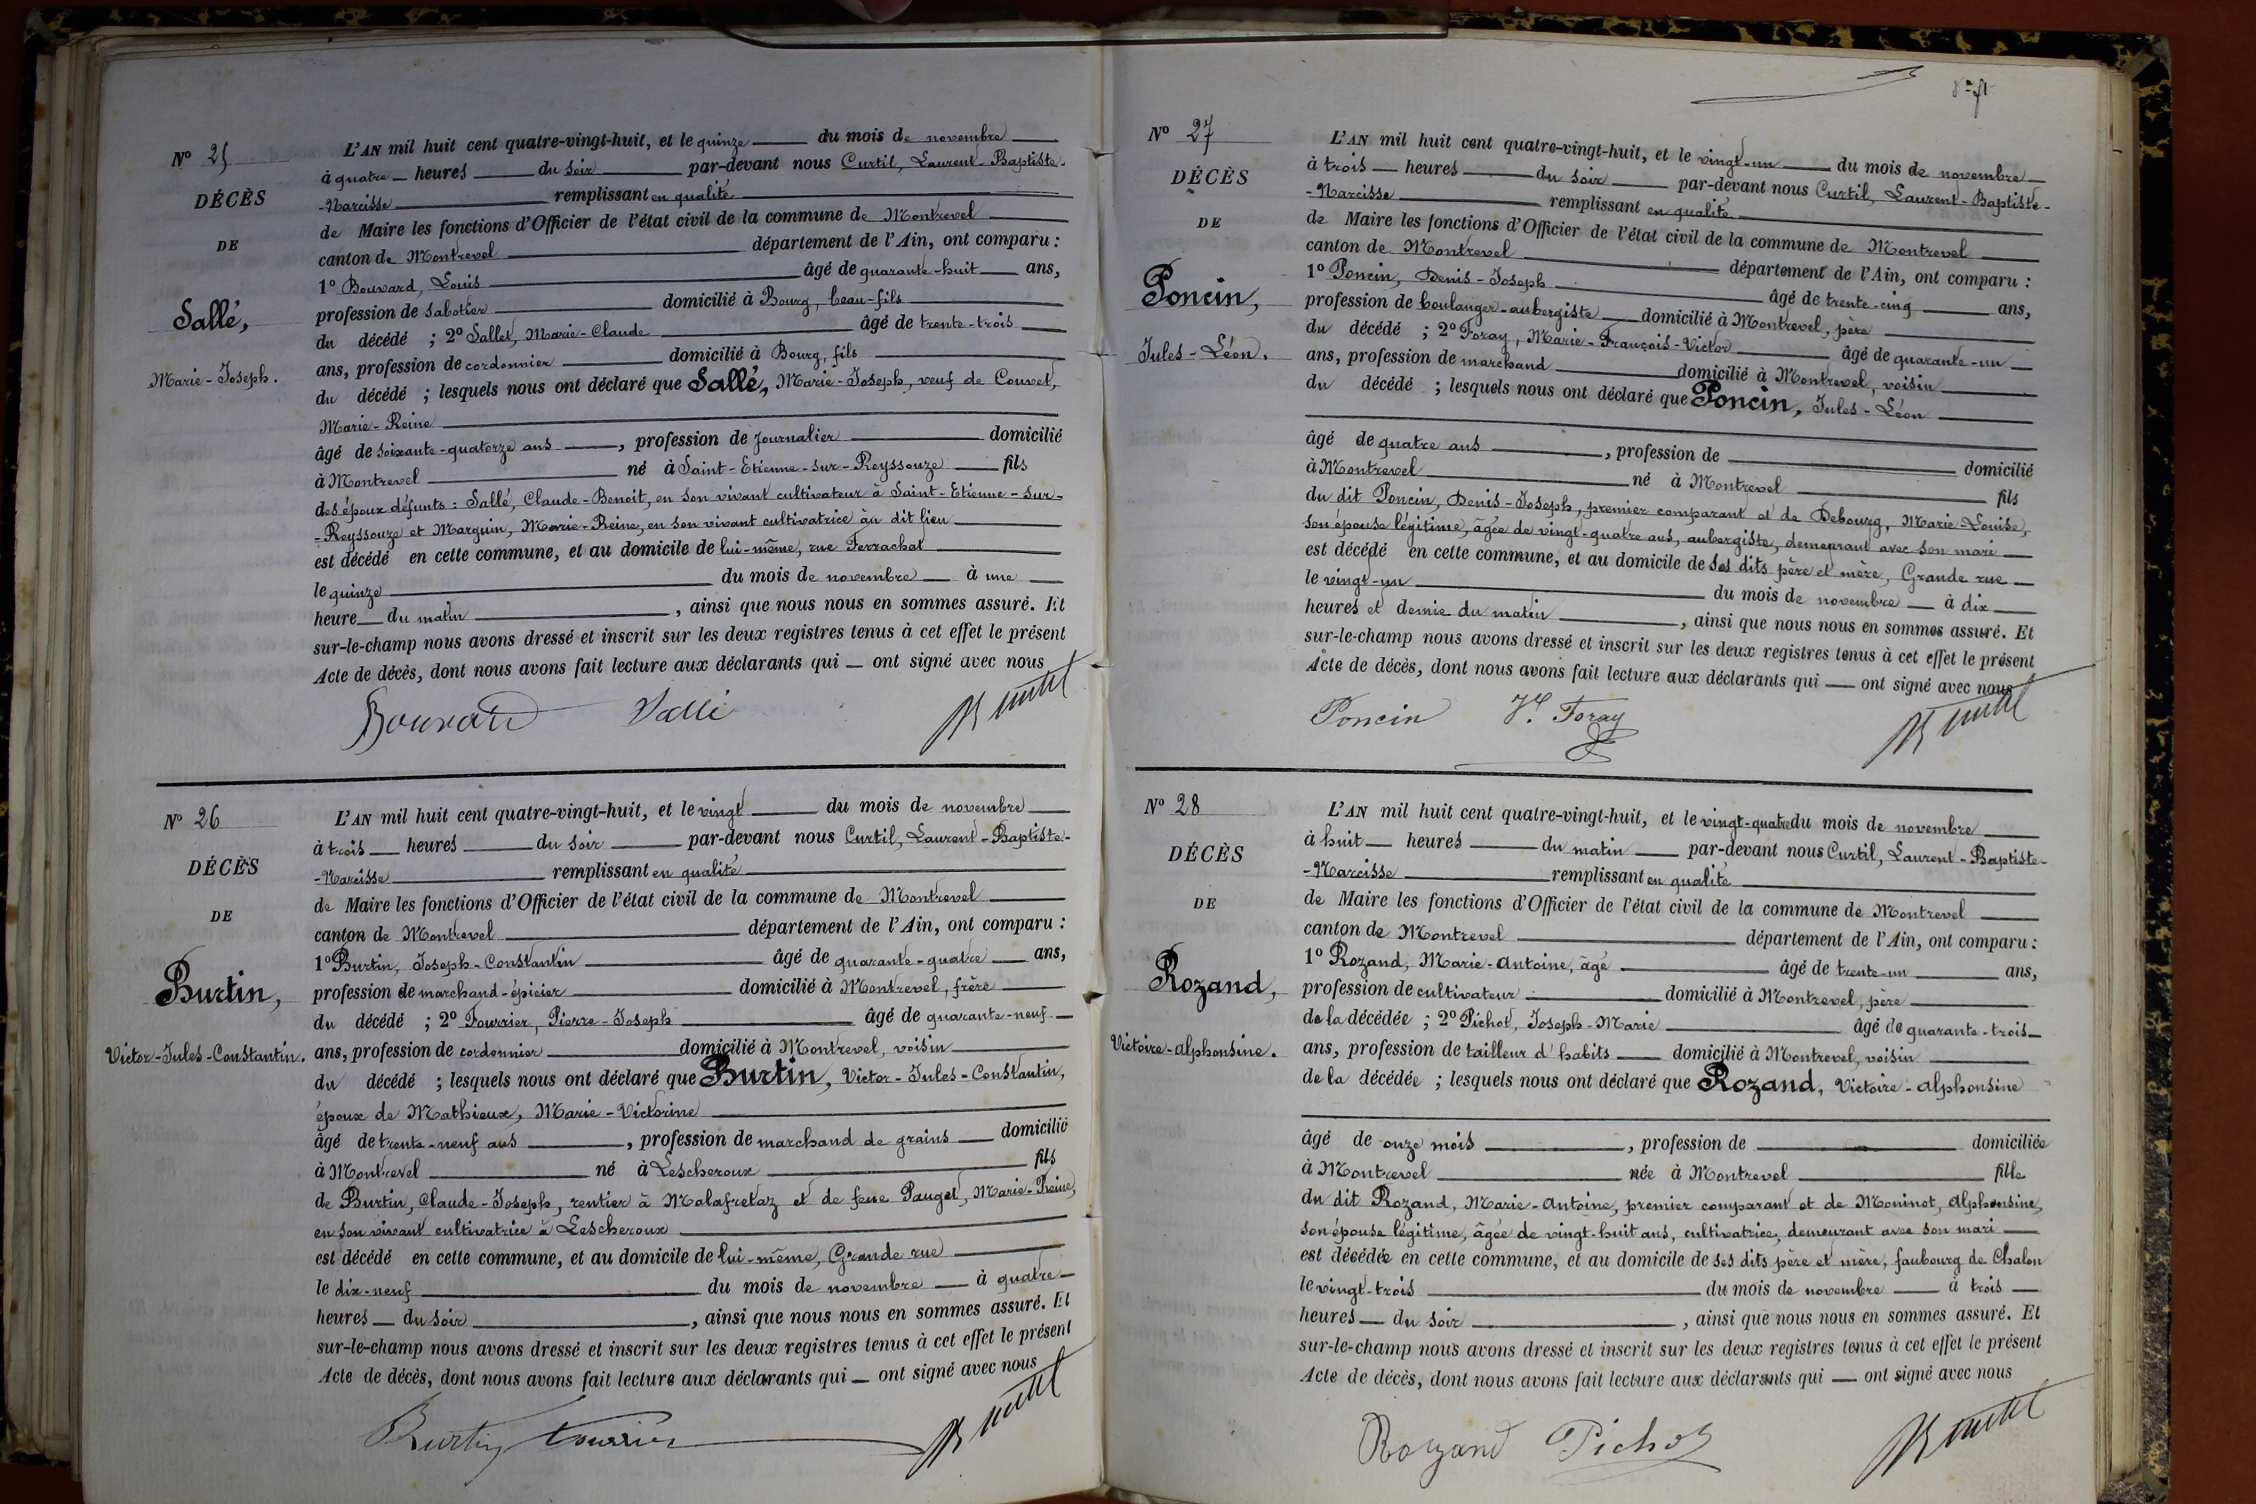 N° 25
DÉCÈS
DE
Sallé,
Marie-Joseph.
L'AN mil huit cent quatre-vingt-huit, et le quinze du mois de novembre
à quatre heures du soir par-devant nous Curtil, Laurent-Baptiste-
-Narcisse remplissant en qualité
de Maire les fonctions d'Officier de l'état civil de la commune de Montrevel
canton de Montrevel département de l'Ain, ont comparu :
1° Bouvard, Louis âgé de quarante-huit ans,
profession de sabotier domicilié à Bourg, beau-fils
du décédé ; 2° Sallet, Marie-Claude âgé de trente-trois
ans, profession de cordonnier domicilié à Bourg, fils
du décédé ; lesquels nous ont déclaré que Sallé, Marie-Joseph, veuf de Couvet,
Marie-Reine
âgé de soixante-quatorze ans , profession de journalier domicilié
à Montrevel né à Saint-Etienne-sur-Reyssouze fils
des époux défunts : Sallé, Claude-Benoit, en son vivant cultivateur à Saint-Etienne-sur-
-Reyssouze et Marguin, Marie-Reine, en son vivant cultivatrice au dit lieu
est décédé en cette commune, et au domicile de lui-même, rue Ferrachat
le quinze du mois de novembre à une
heure du matin , ainsi que nous nous en sommes assuré. Et
sur-le-champ nous avons dressé et inscrit sur les deux registres tenus à cet effet le présent
Acte de décès, dont nous avons fait lecture aux déclarants qui ont signé avec nous
Bouvard Sallé
N° 26
DÉCÈS
DE
Burtin,
Victor-Jules-Constantin.
L'AN mil huit cent quatre-vingt-huit, et le vingt du mois de novembre
à trois heures du soir par-devant nous Curtil, Laurent-Baptiste-
-Narcisse remplissant en qualité
de Maire les fonctions d'Officier de l'état civil de la commune de Montrevel
canton de Montrevel département de l'Ain, ont comparu :
1° Burtin, Joseph-Constantin âgé de quarante-quatre ans,
profession de marchand-épicier domicilié à Montrevel, frère
du décédé ; 2° Fourrier, Pierre-Joseph âgé de quarante-neuf
ans, profession de cordonnier domicilié à Montrevel, voisin
du décédé ; lesquels nous ont déclaré que Burtin, Victor-Jules-Constantin,
époux de Mathieux, Marie-Victorine
âgé de trente-neuf ans , profession de marchand de grains domicilié
à Montrevel né à Lescheroux fils
de Burtin, Claude-Joseph, rentier à Malafretaz et de feue Pauget, Marie-Reine,
en son vivant cultivatrice à Lescheroux
est décédé en cette commune, et au domicile de lui-même, Grande rue
le dix-neuf du mois de novembre à quatre
heures du soir , ainsi que nous nous en sommes assuré. Et
sur-le-champ nous avons dressé et inscrit sur les deux registres tenus à cet effet le présent
Acte de décès, dont nous avons fait lecture aux déclarants qui ont signé avec nous
Burtin Fourrier
N° 27
DÉCÈS
DE
Poncin,
Jules-Léon.
L'AN mil huit cent quatre-vingt-huit, et le vingt-un du mois de novembre
à trois heures du soir par-devant nous Curtil, Laurent-Baptiste-
-Narcisse remplissant en qualité
de Maire les fonctions d'Officier de l'état civil de la commune de Montrevel
canton de Montrevel département de l'Ain, ont comparu :
1° Poncin, Denis-Joseph âgé de trente-cinq ans,
profession de boulanger-aubergiste domicilié à Montrevel, père
du décédé ; 2° Foray, Marie-François-Victor âgé de quarante-un
ans, profession de marchand domicilié à Montrevel, voisin
du décédé ; lesquels nous ont déclaré que Poncin, Jules-Léon
âgé de quatre ans , profession de domicilié
à Montrevel né à Montrevel fils
du dit Poncin, Denis-Joseph, premier comparant et de Debourg, Marie-Louise,
son épouse légitime, âgée de vingt-quatre ans, aubergiste, demeurant avec son mari
est décédé en cette commune, et au domicile de ses dits père et mère, Grande rue
le vingt-un du mois de novembre à dix
heures et demie du matin , ainsi que nous nous en sommes assuré. Et
sur-le-champ nous avons dressé et inscrit sur les deux registres tenus à cet effet le présent
Acte de décès, dont nous avons fait lecture aux déclarants qui ont signé avec nous
Poncin Foray
N° 28
DÉCÈS
DE
Rozand,
Victoire-Alphonsine.
L'AN mil huit cent quatre-vingt-huit, et le vingt-quatre du mois de novembre
à huit heures du matin par-devant nous Curtil, Laurent-Baptiste-
-Narcisse remplissant en qualité
de Maire les fonctions d'Officier de l'état civil de la commune de Montrevel
canton de Montrevel département de l'Ain, ont comparu :
1° Rozand, Marie-Antoine, âgé âgé de trente-un ans,
profession de cultivateur domicilié à Montrevel, père
de la décédée ; 2° Pichot, Joseph-Marie âgé de quarante-trois
ans, profession de tailleur d'habits domicilié à Montrevel, voisin
de la décédée ; lesquels nous ont déclaré que Rozand, Victoire-Alphonsine
âgé de onze mois , profession de domiciliée
à Montrevel née à Montrevel fille
du dit Rozand, Marie-Antoine, premier comparant et de Moninot, Alphonsine,
son épouse légitime, âgée de vingt-huit ans, cultivatrice, demeurant avec son mari
est décédée en cette commune, et au domicile de ses dits père et mère, faubourg de Chalon
le vingt-trois du mois de novembre à trois
heures du soir , ainsi que nous nous en sommes assuré. Et
sur-le-champ nous avons dressé et inscrit sur les deux registres tenus à cet effet le présent
Acte de décès, dont nous avons fait lecture aux déclarants qui ont signé avec nous
Rozand Pichot